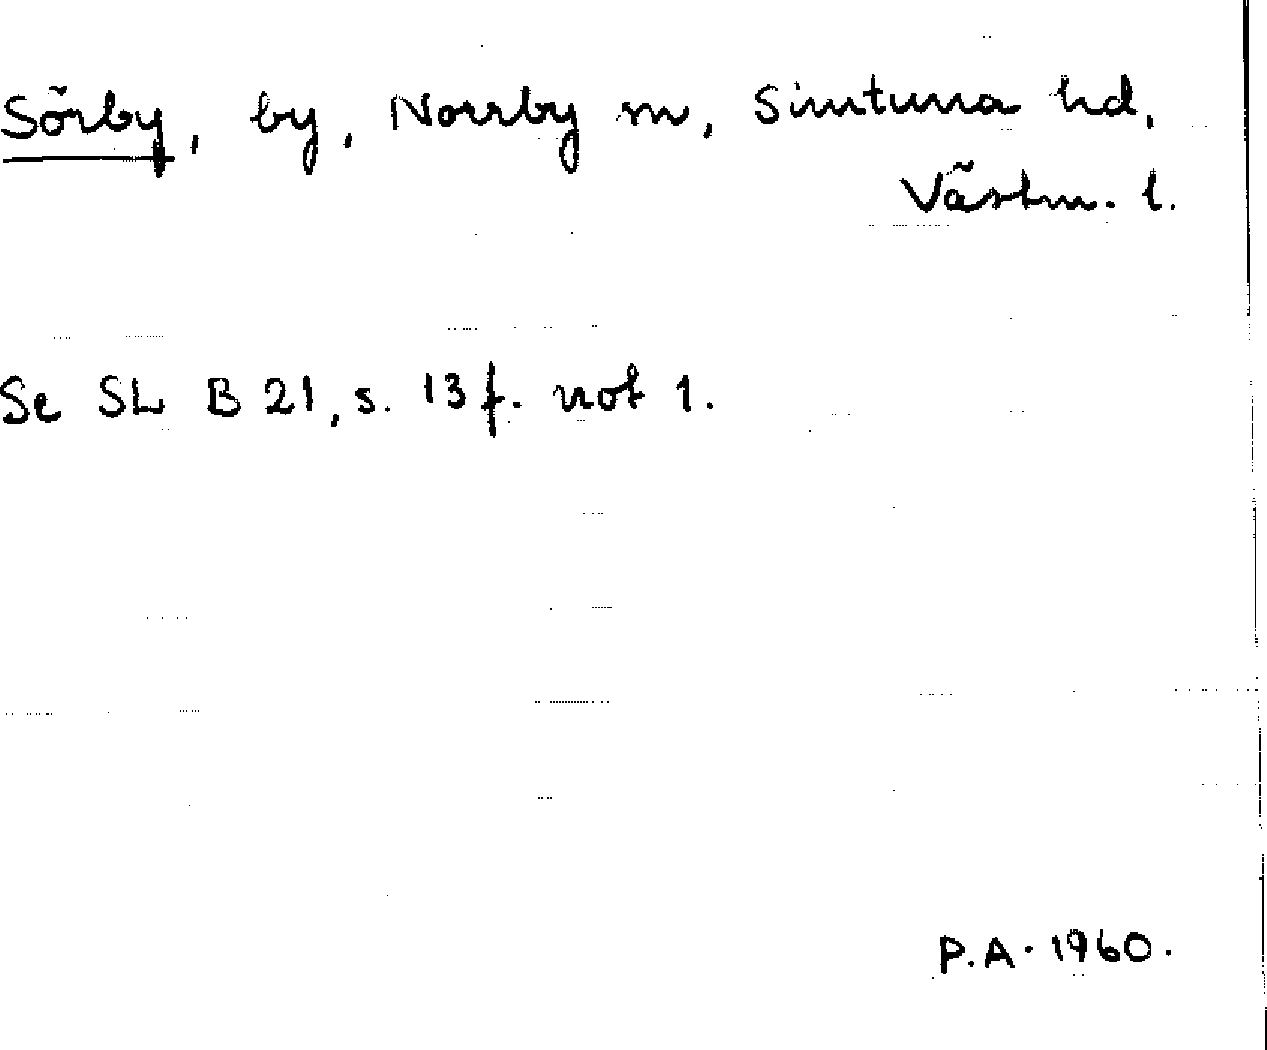 Sörby, by, Norrby sn, Simtuna hd,
Västm. l.
Se SL B 21, s. 13 f. not 1.
P.A. 1960.